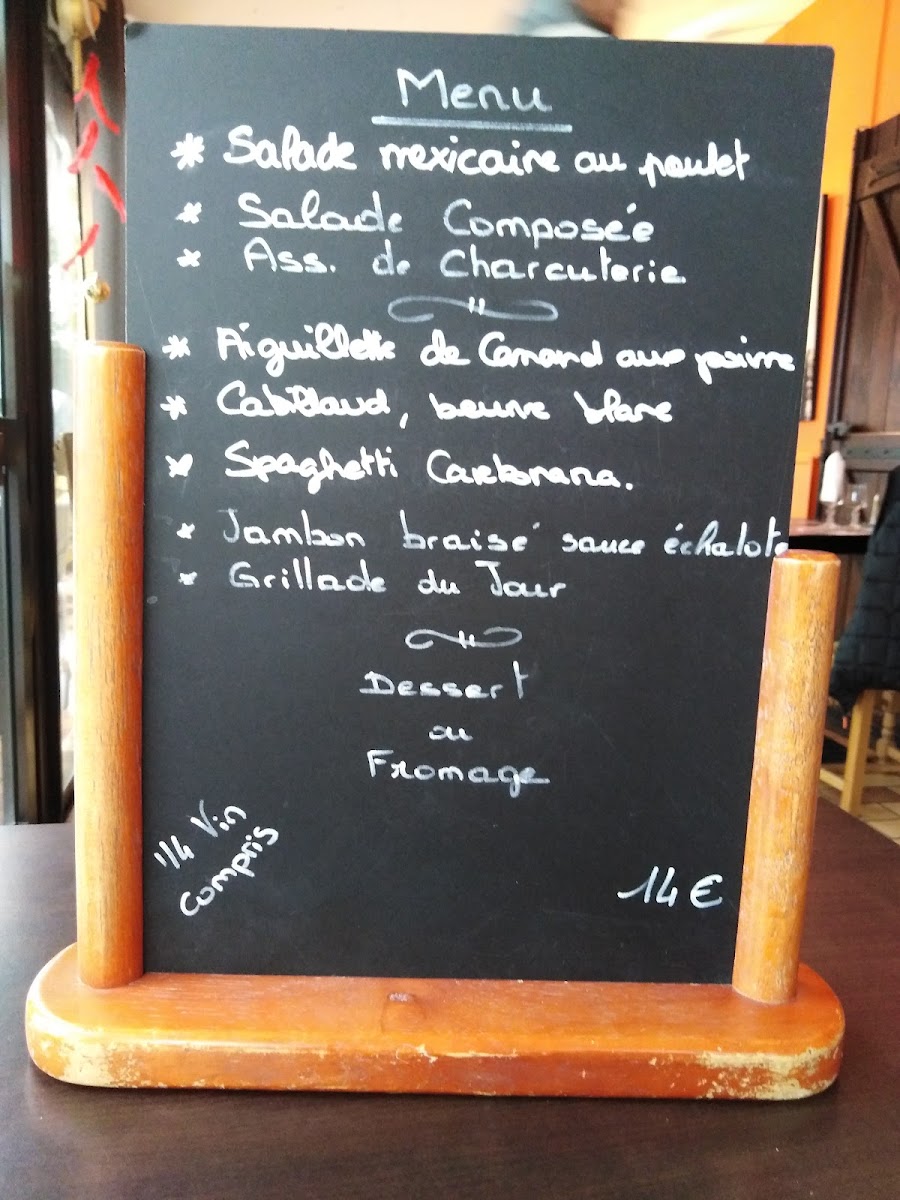 Menu
* Salade mexicaine au poulet
* Salade Composée
* Ass. de Charcuterie
* Aiguillette de Canard aux poivre
* Cabillaud, beurre blanc
* Spaghetti Carbonara.
* Jambon braisé sauce échalote
* Grillade du Jour
Dessert
ou
Fromage
1/4 Vin
compris
14€